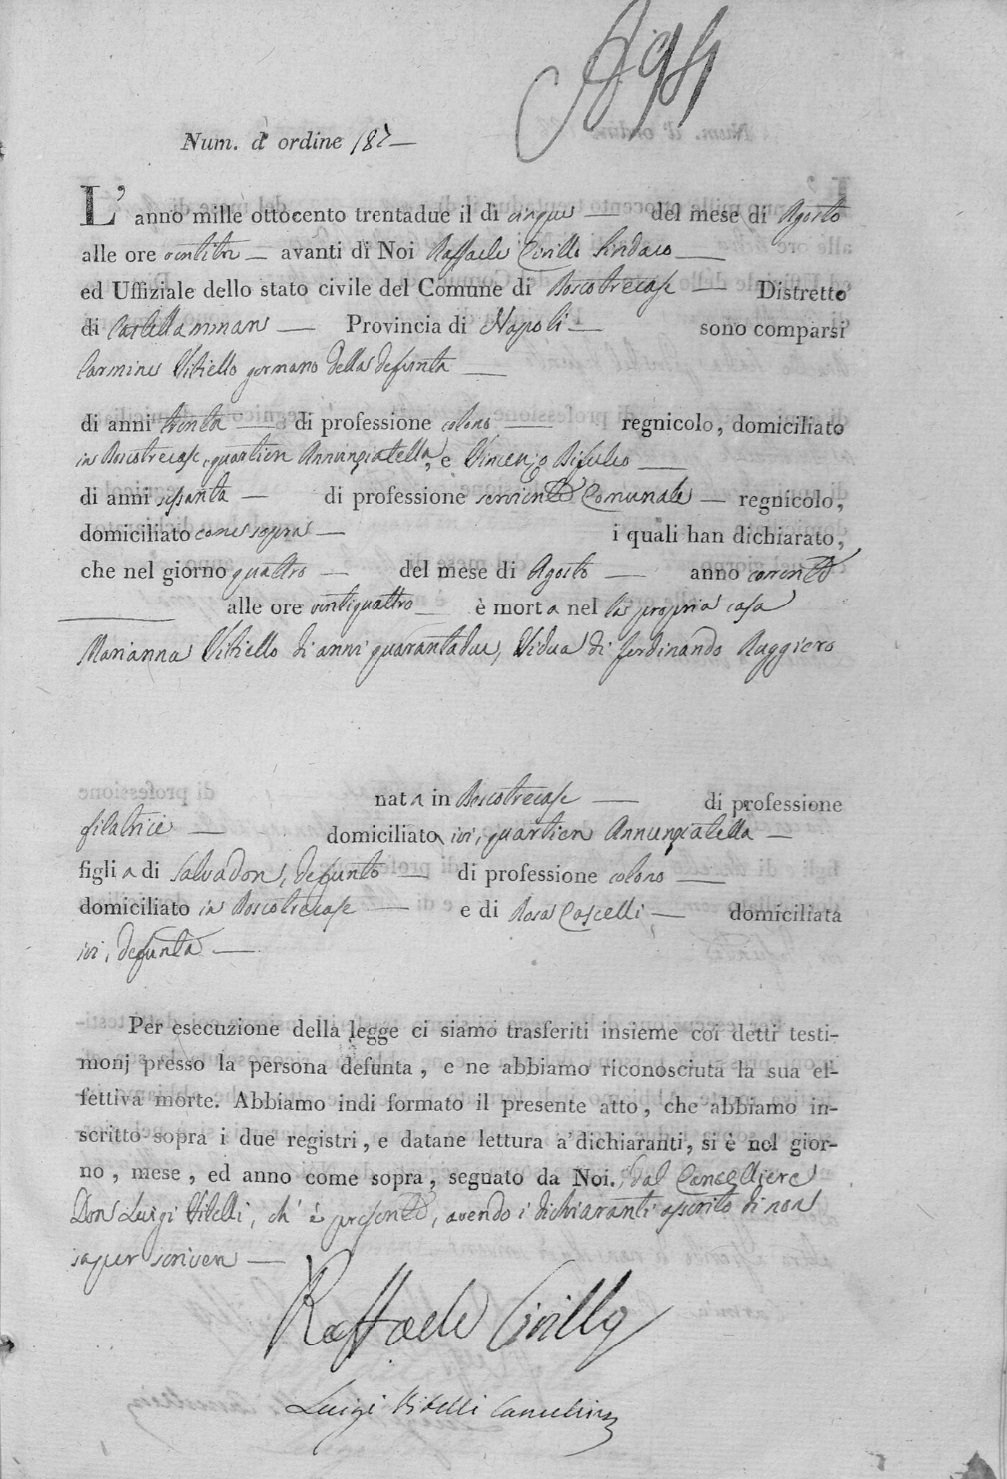 Num. d' ordine 187
L' anno mille ottocento trentadue il di cinque del mese di Agosto
alle ore ventitre avanti di Noi Raffaele Cirillo Sindaco
ed Uffiziale dello stato civile del Comune di Boscotrecase Distretto
di Castellammare Provincia di Napoli sono comparsi
Carmine Vitiello germano della defunta
di anni trenta di professione colono regnicolo, domiciliato
in Boscotrecase, quartiere Annunziatella, e Vincenzo Bifulco
di anni sessanta di professione serviente Comunale regnicolo,
domiciliato come sopra i quali han dichiarato,
che nel giorno quattro del mese di Agosto anno corrente
alle ore ventiquattro è morta nel la propria casa
Marianna Vitiello di anni quarantadue, Vidua di Ferdinando Ruggiero
nata in Boscotrecase di professione
filatrice domiciliata ivi, quartiere Annunziatella
figlia di Salvadore, defunto di professione colono
domiciliato in Boscotrecase e di Rosa Cascelli domiciliata
ivi, defunta
Per esecuzione della legge ci siamo trasferiti insieme coi detti testi-
monj presso la persona defunta, e ne abbiamo riconosciuta la sua ef-
fettiva morte. Abbiamo indi formato il presente atto, che abbiamo in-
scritto sopra i due registri, e datane lettura a' dichiaranti, si è nel gior-
no, mese, ed anno come sopra, segnato da Noi. dal Cancelliere
Don Luigi Vitelli, ch' è presente, avendo i dichiaranti asserito di non
saper scrivere
Raffaele Cirillo
Luigi Vitelli Cancelliere